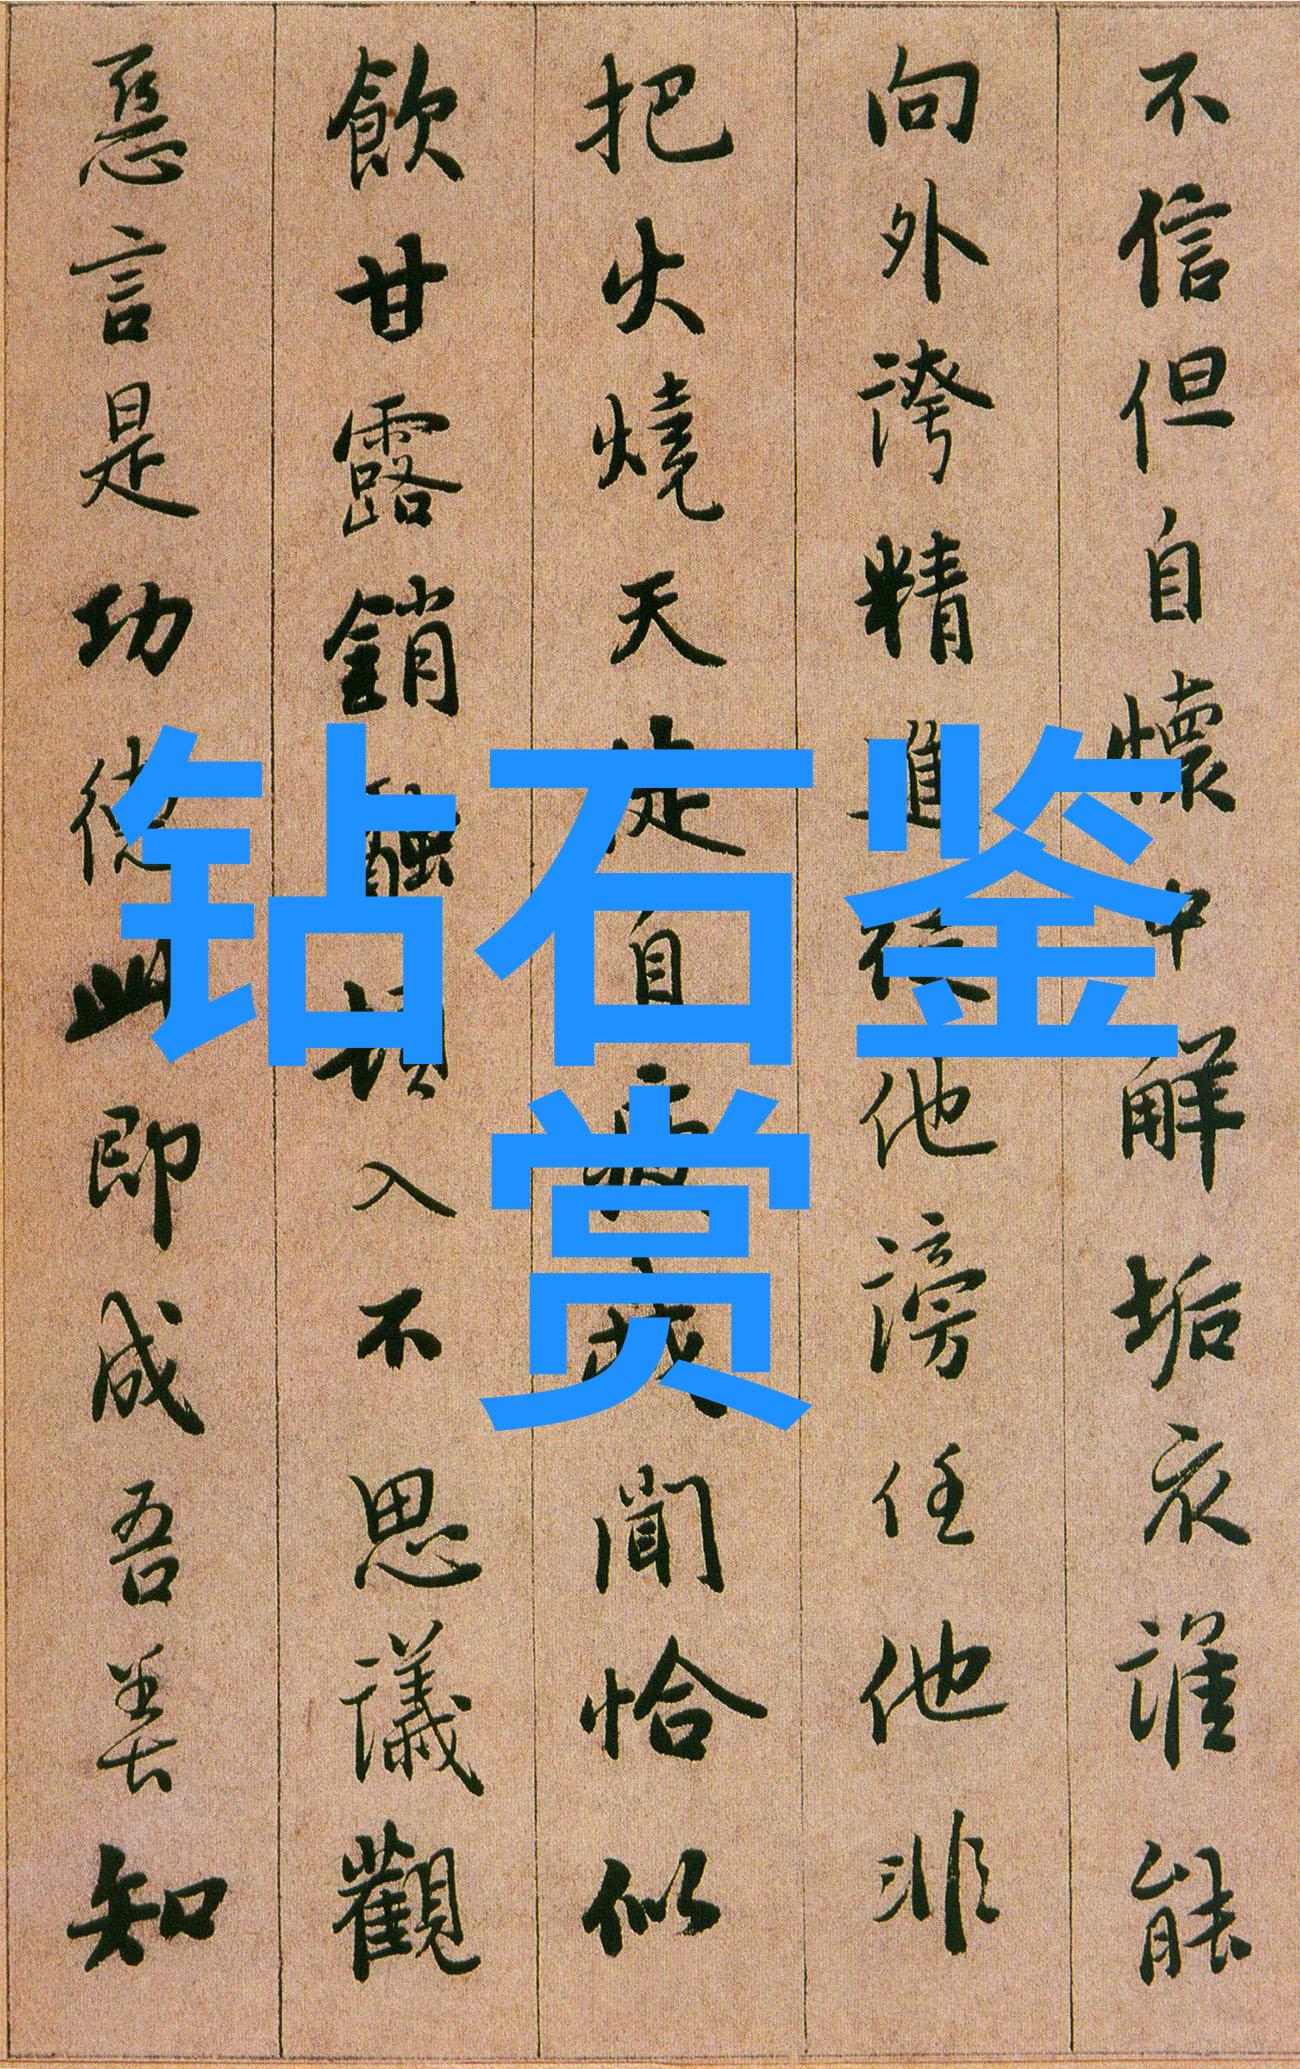 不信但自懷中解垢衣誰能
向外誇精進從他謗任他非
把火燒天徒自疲我聞恰似
飲甘露銷融頓入不思議觀
惡言是功德此即成吾善知
钻石鉴
赏